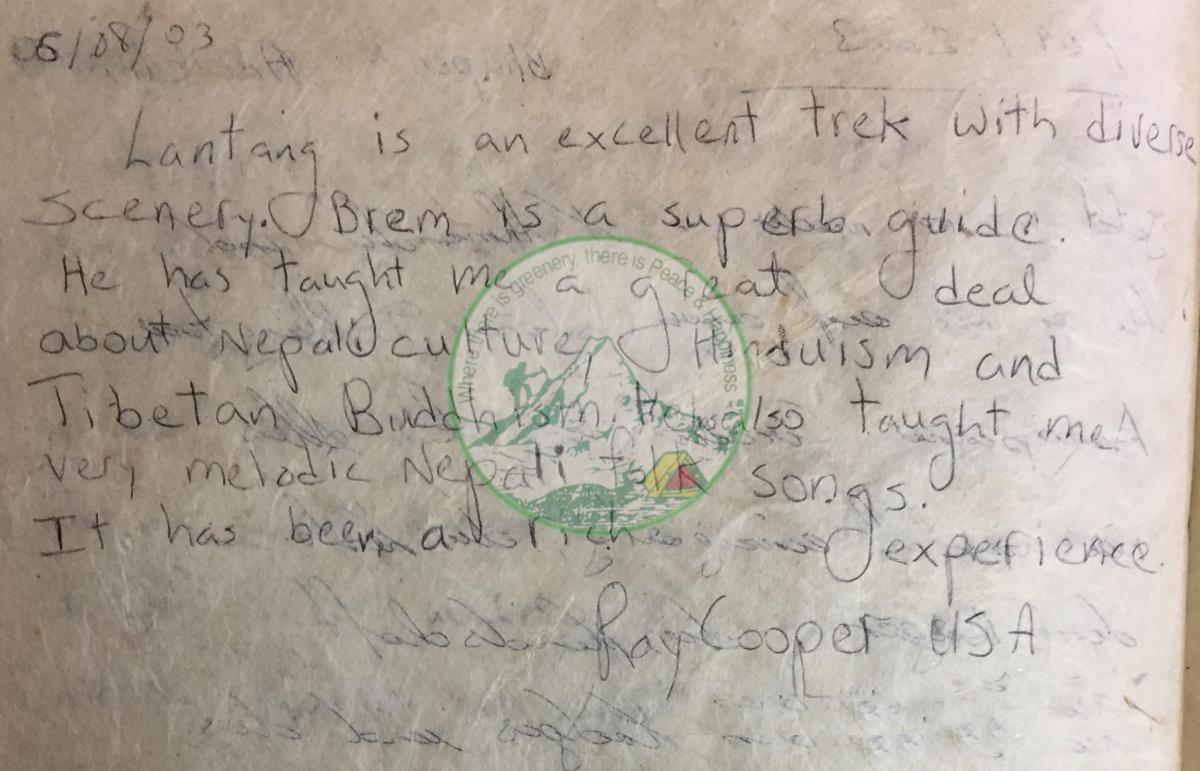 06/08/03
Lantang is an excellent trek with diverse
scenery. Brem is a superb guide.
He has taught me a great deal
about Nepali culture, Hinduism and
Tibetan Buddhism. He also taught me
very melodic Nepali folk songs.
It has been a rich experience.
Ray Cooper USA
Where there is greenery, there is Peace & Happiness